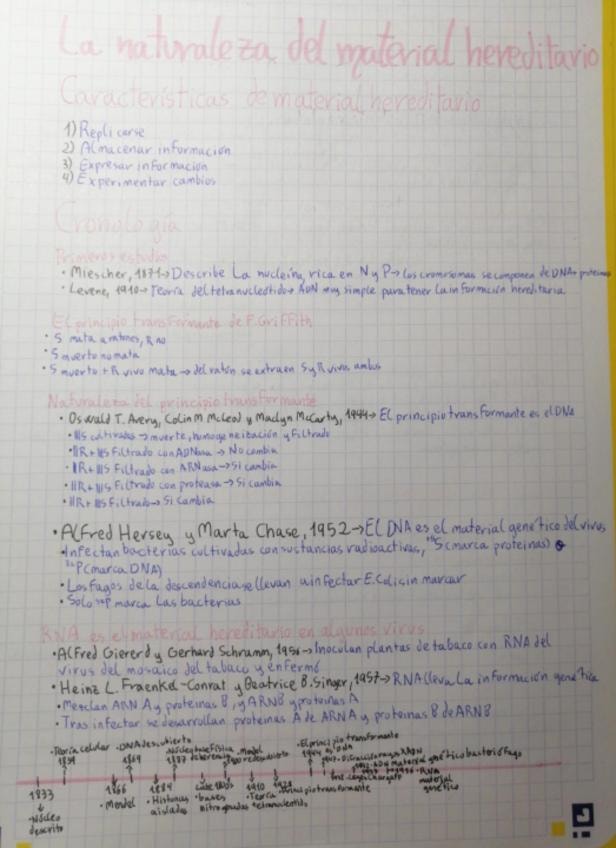 La naturaleza del material hereditario
Características de material hereditario
1) Replicarse
2) Almacenar información
3) Expresar información
4) Experimentar cambios
Cronología
Primeros estudio
· Miescher, 1871→Describe La nucleína, rica en N y P→ los cromosomas se componen de DNA+ proteinas
· Levene, 1910→ Teoría del tetranucleotido→ ADN muy simple para tener la información hereditaria
El principio transformante de F. Griffith
· S mata a ratones, R no
· S muerto no mata
· S muerto + R vivo mata → del ratón se extraen S y R vivos ambos
Naturaleza del principio transformante
· Oswald T. Avery, Colin M McLeod y Maclyn McCarty, 1944→ El principio transformante es el DNA
· IIIS cultivados → muerte, homogeneización y filtrado
· IIR+IIIS Filtrado con ADNasa → No cambia
· IIR+IIIS Filtrado con ARNasa → Si cambia
· IIR+IIIS Filtrado con proteasa → Si cambia
· IIR+IIIS Filtrado → Si Cambia
· Alfred Hersey y Marta Chase, 1952→El DNA es el material genético del virus
· Infectan bacterias cultivadas con sustancias radioactivas, ³⁵S(marca proteinas)
³²P(marca DNA)
· Los fagos de la descendencia se llevan a infectar E.Coli sin marcar
· Solo ³²P marca las bacterias
RNA es el material hereditario en algunos virus
· Alfred Giererd y Gerhard Schramm, 1956→ Inoculan plantas de tabaco con RNA del
virus del mosaico del tabaco y enfermó
· Heinz L. Fraenkel-Conrat y Beatrice B. Singer, 1957→ RNA lleva la información genética
· Mezclan ARN A y proteinas B, y ARN B y proteinas A
· Tras infectar se desarrollan proteinas A de ARN A, y proteinas B de ARN B
· Teoría celular
1839
· DNA descubierto
1869
1887
· El principio transformante
1944 es DNA
1833
· Núcleo
descrito
1866
· Mendel
1884
· Histonas
aisladas
· bases
nitrogenadas
1910
· Teoría
tetranucleotido
1928
· Principio transformante
· RNA
material
genético